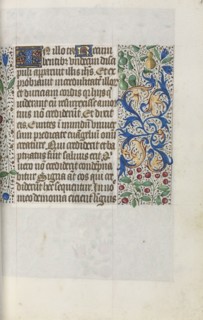 In illo tempore Recum
bentibus undecim disci
pulis aparuit illis ihs. Et ex
probravit incredulitatem illorum
et duriciam cordis quia his qui
viderant eum resurrexisse a mor
tuis non crediderunt Et dixit
eis Euntes in mundum univer
sum predicate evangelium omni
creature Qui crediderit et ba
ptizatus fuerit salvus erit Qui
vero non crediderit condempna
bitur Signa autem eos qui cre
diderint hec sequentur In no
mine demonia eicient linguis